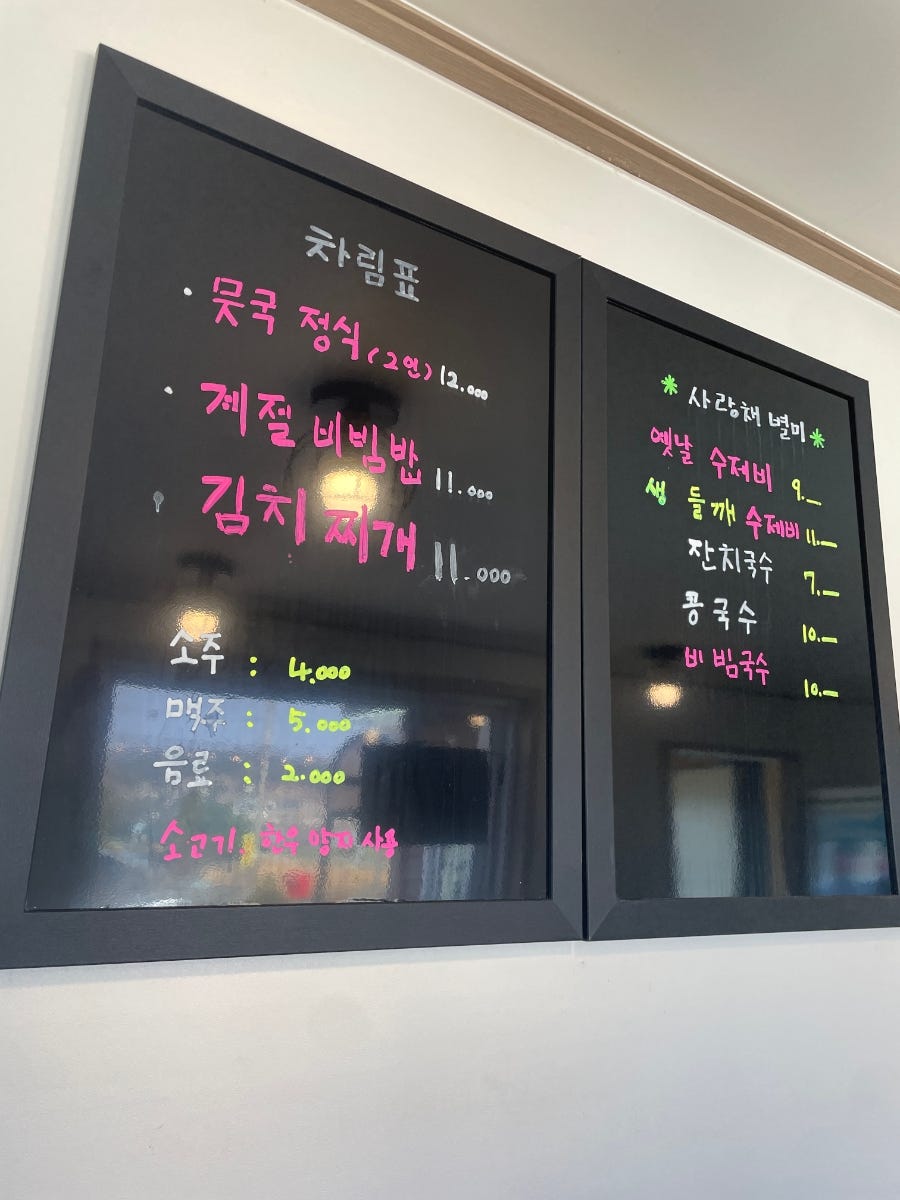 차림표
· 뭇국 정식 (2인) 12.000
· 계절 비빔밥 11.000
· 김치 찌개 11.000
소주 : 4.000
맥주 : 5.000
음료 : 2.000
소고기, 한우 양지 사용
* 사랑채 별미 *
옛날 수제비 9.—
생 들깨 수제비 11.—
잔치국수 7.—
콩국수 10.—
비빔국수 10.—